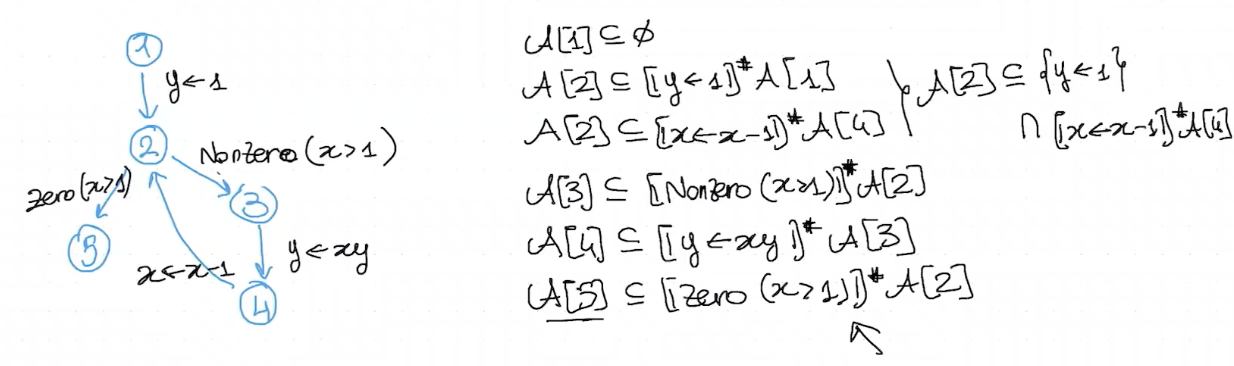 1
y ← 1
2
NonZero (x>1)
Zero (x>1)
3
5
x ← x-1
y ← xy
4
A[1] ⊆ ∅
A[2] ⊆ [[y←1]]# A[1]
A[2] ⊆ [[x←x-1]]# A[4]
A[2] ⊆ {y←1}
∩ [[x←x-1]]# A[4]
A[3] ⊆ [[NonZero (x>1)]]# A[2]
A[4] ⊆ [[y←xy]]# A[3]
A[5] ⊆ [[Zero (x>1)]]# A[2]